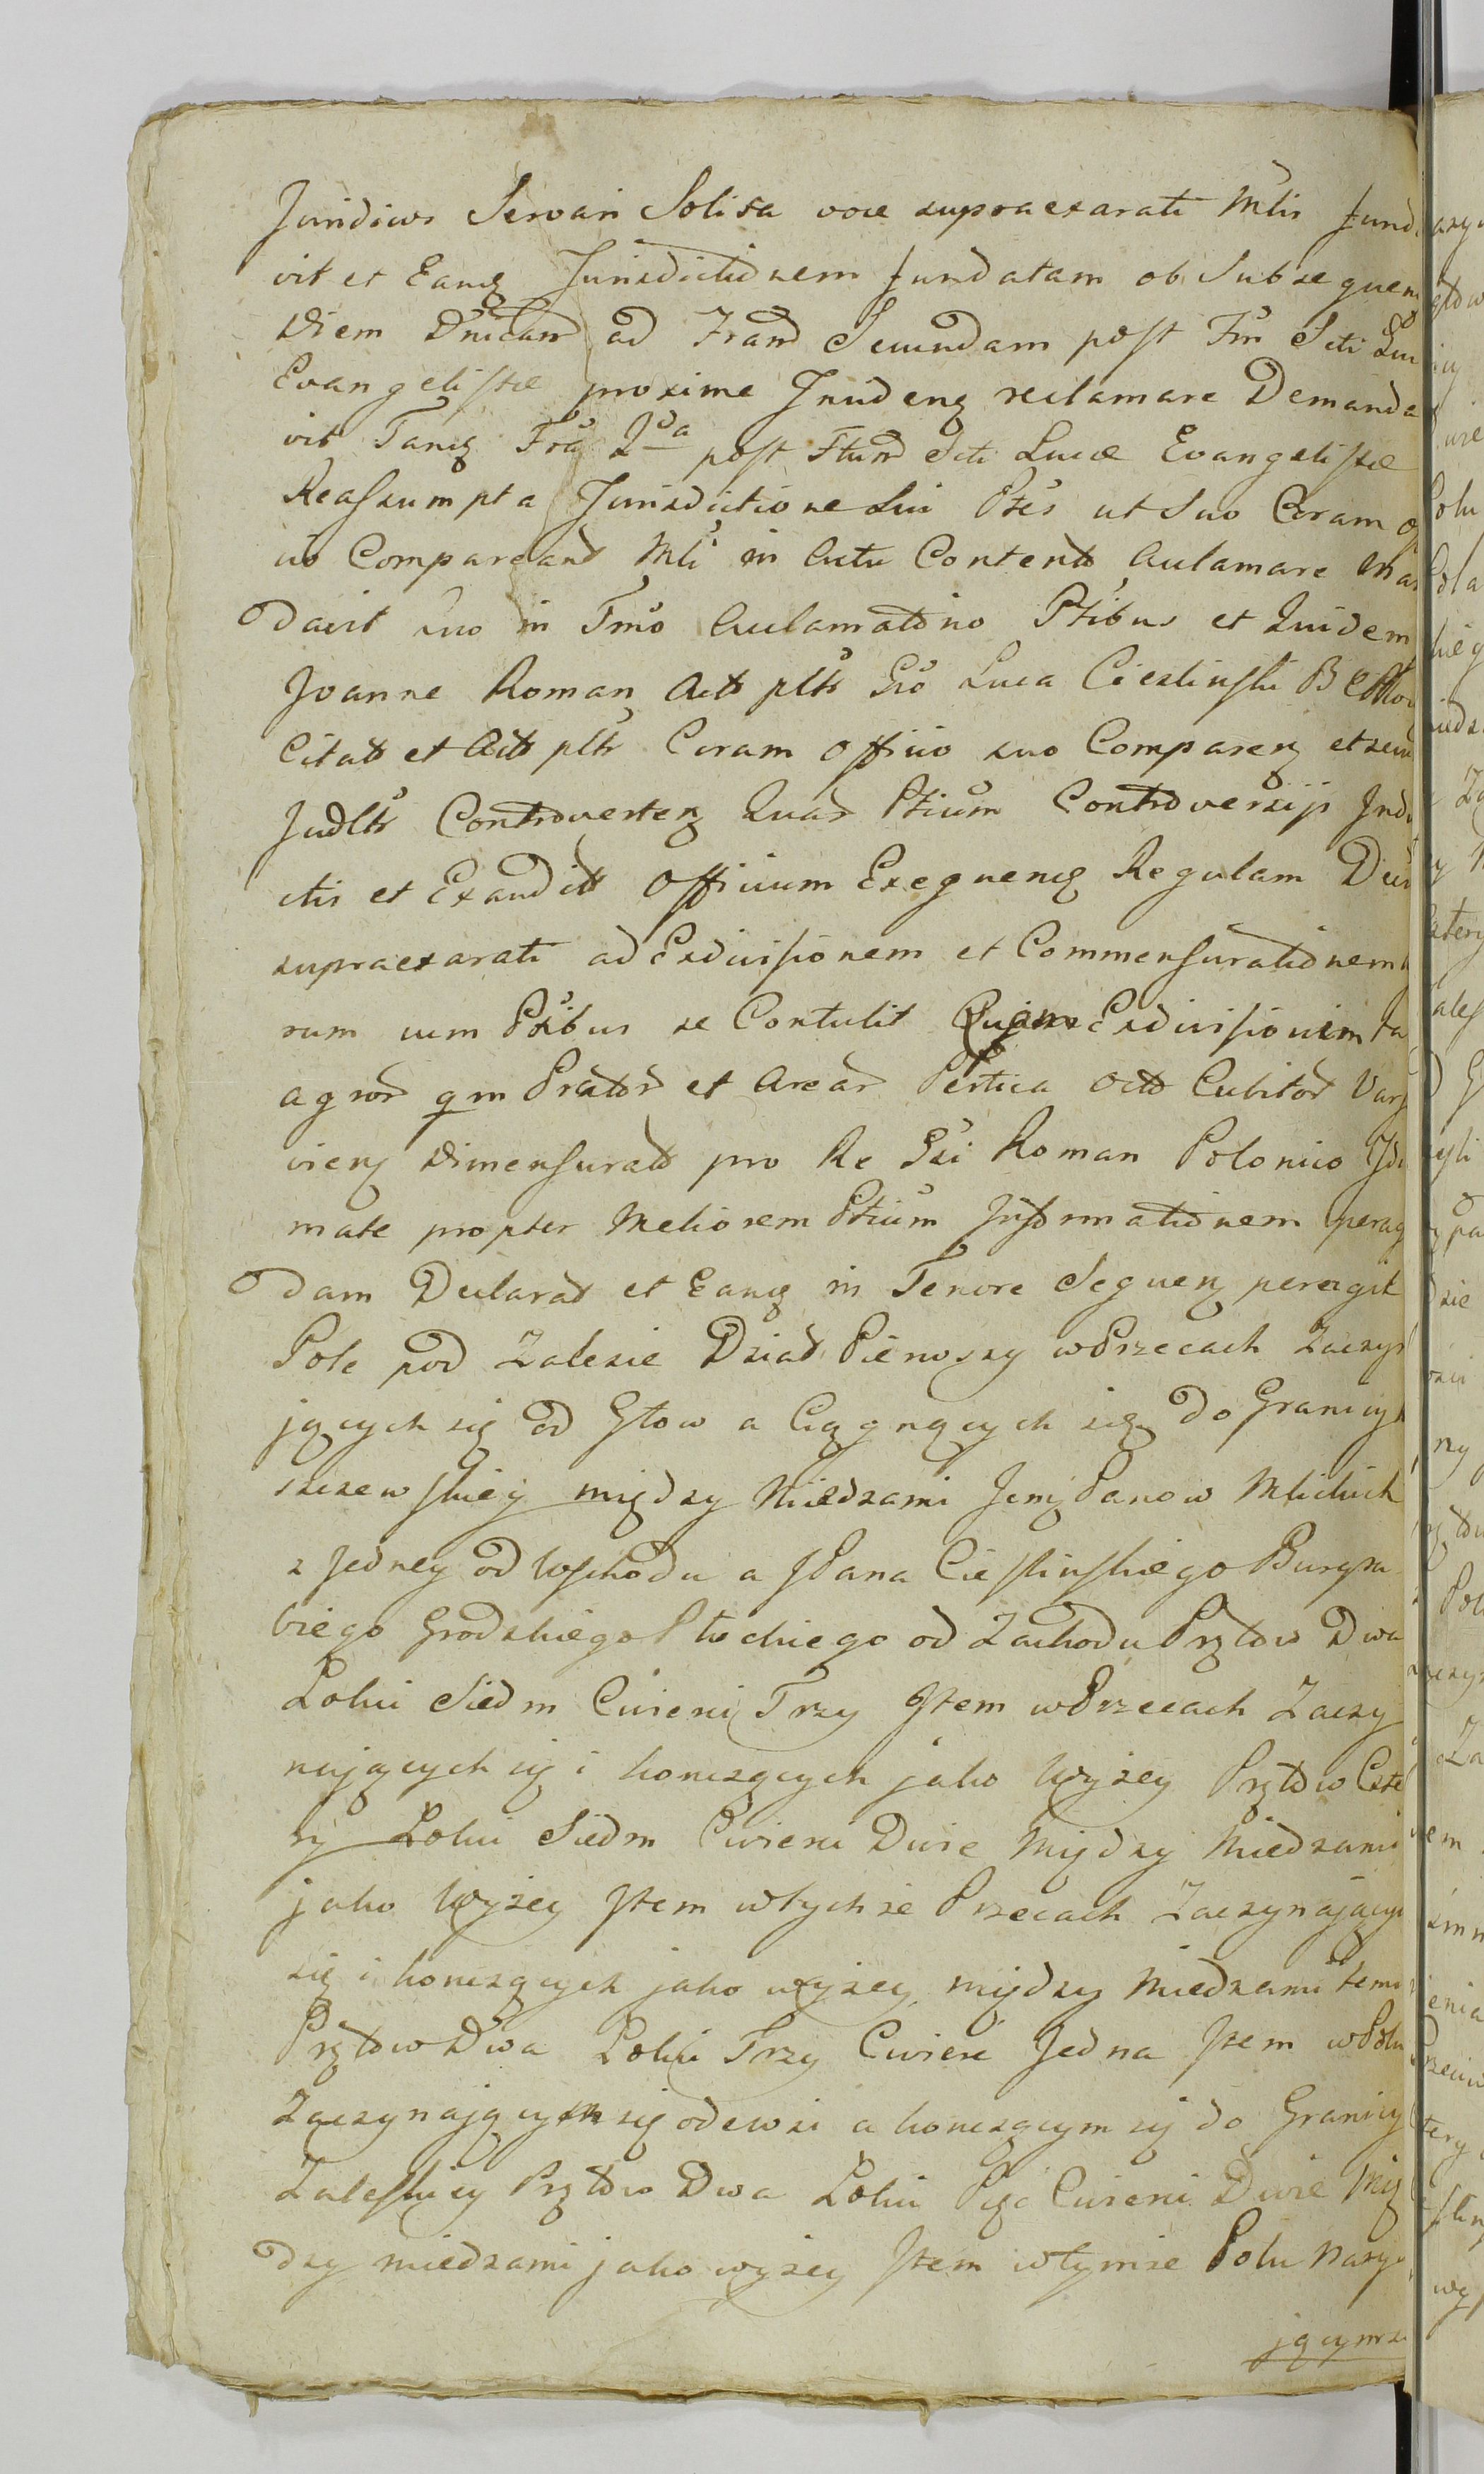 Juridicus Servari Solita voce supraexarati Mtlis Fund
vit et Eandq Jurisdictionem fundatam ob Subsequen
Diem Dnicam ad Fram Secundam post Ftm Scti Luc
Evangelistæ proxime Incidenq reclamare Demanda
vit Tanq Fra 2da post Ftum Scti Lucæ Evangelistæ
Reassumpta Jurisdictione Sui Ptes ut Suo Coram
uo Compareant Mtli in Actu Contento Acclamare Man
davit suo in Tmo Acclamationo Ptibus et Quidem
Joanne Roman Acto pltr Gso Luca Cieslinski
Citato et Acto pltr Coram Officio suo Comparenq et secu
Judltr Controvertenq Quar Ptium Controversijs Indu
ctis et Exauditis Officium Exequenq Regulam
supraexarati ad Exdivisionem et Commensurationem
rum cum Ptibus se Contulit Quam Exdivisionem ta
agror qm Prator et Arear Pertica Octo Cubitor Vars
vienq Dimensurato pro Re Gsi Roman Polonico Idio
mate propter Meliorem Ptium Informationem perag
dam Declarat et Eamq in Tenore Sequenq peragit
Pole pod Zalesie Dział Pierwszy w Przecach Zaczyn
jących się od Głow a Ciągnących się do Granicy
szczewskiey między Miedzami Jemq Panow Mlickich
z Jedney od Wschodu a JPana Cieslinskiego Burgra
biego Grodzkiego Płockiego od Zachodu Prętow Dwa
Łokci Siedm Cwierci Trzy Item w Przecach Zaczy
nających się i konczących jako Wyżey Prętow Czte
ry Łokci Siedm Cwierci Dwie Między Miedzami
jako Wyżey Item w tychże Przecach Zaczynający
się i konczących jako wyżey między Miedzami temi
Prętow Dwa Łokci Trzy Cwierć Jedna Item w Polu
Zaczynającym się odewsi a konczącym się do Granicy
Zaleskiey Prętow Dwa Łokci Pięć Cwierci Dwie Mię
dzy miedzami jako wyżey Item w tymże Polu Naczy
jącym si